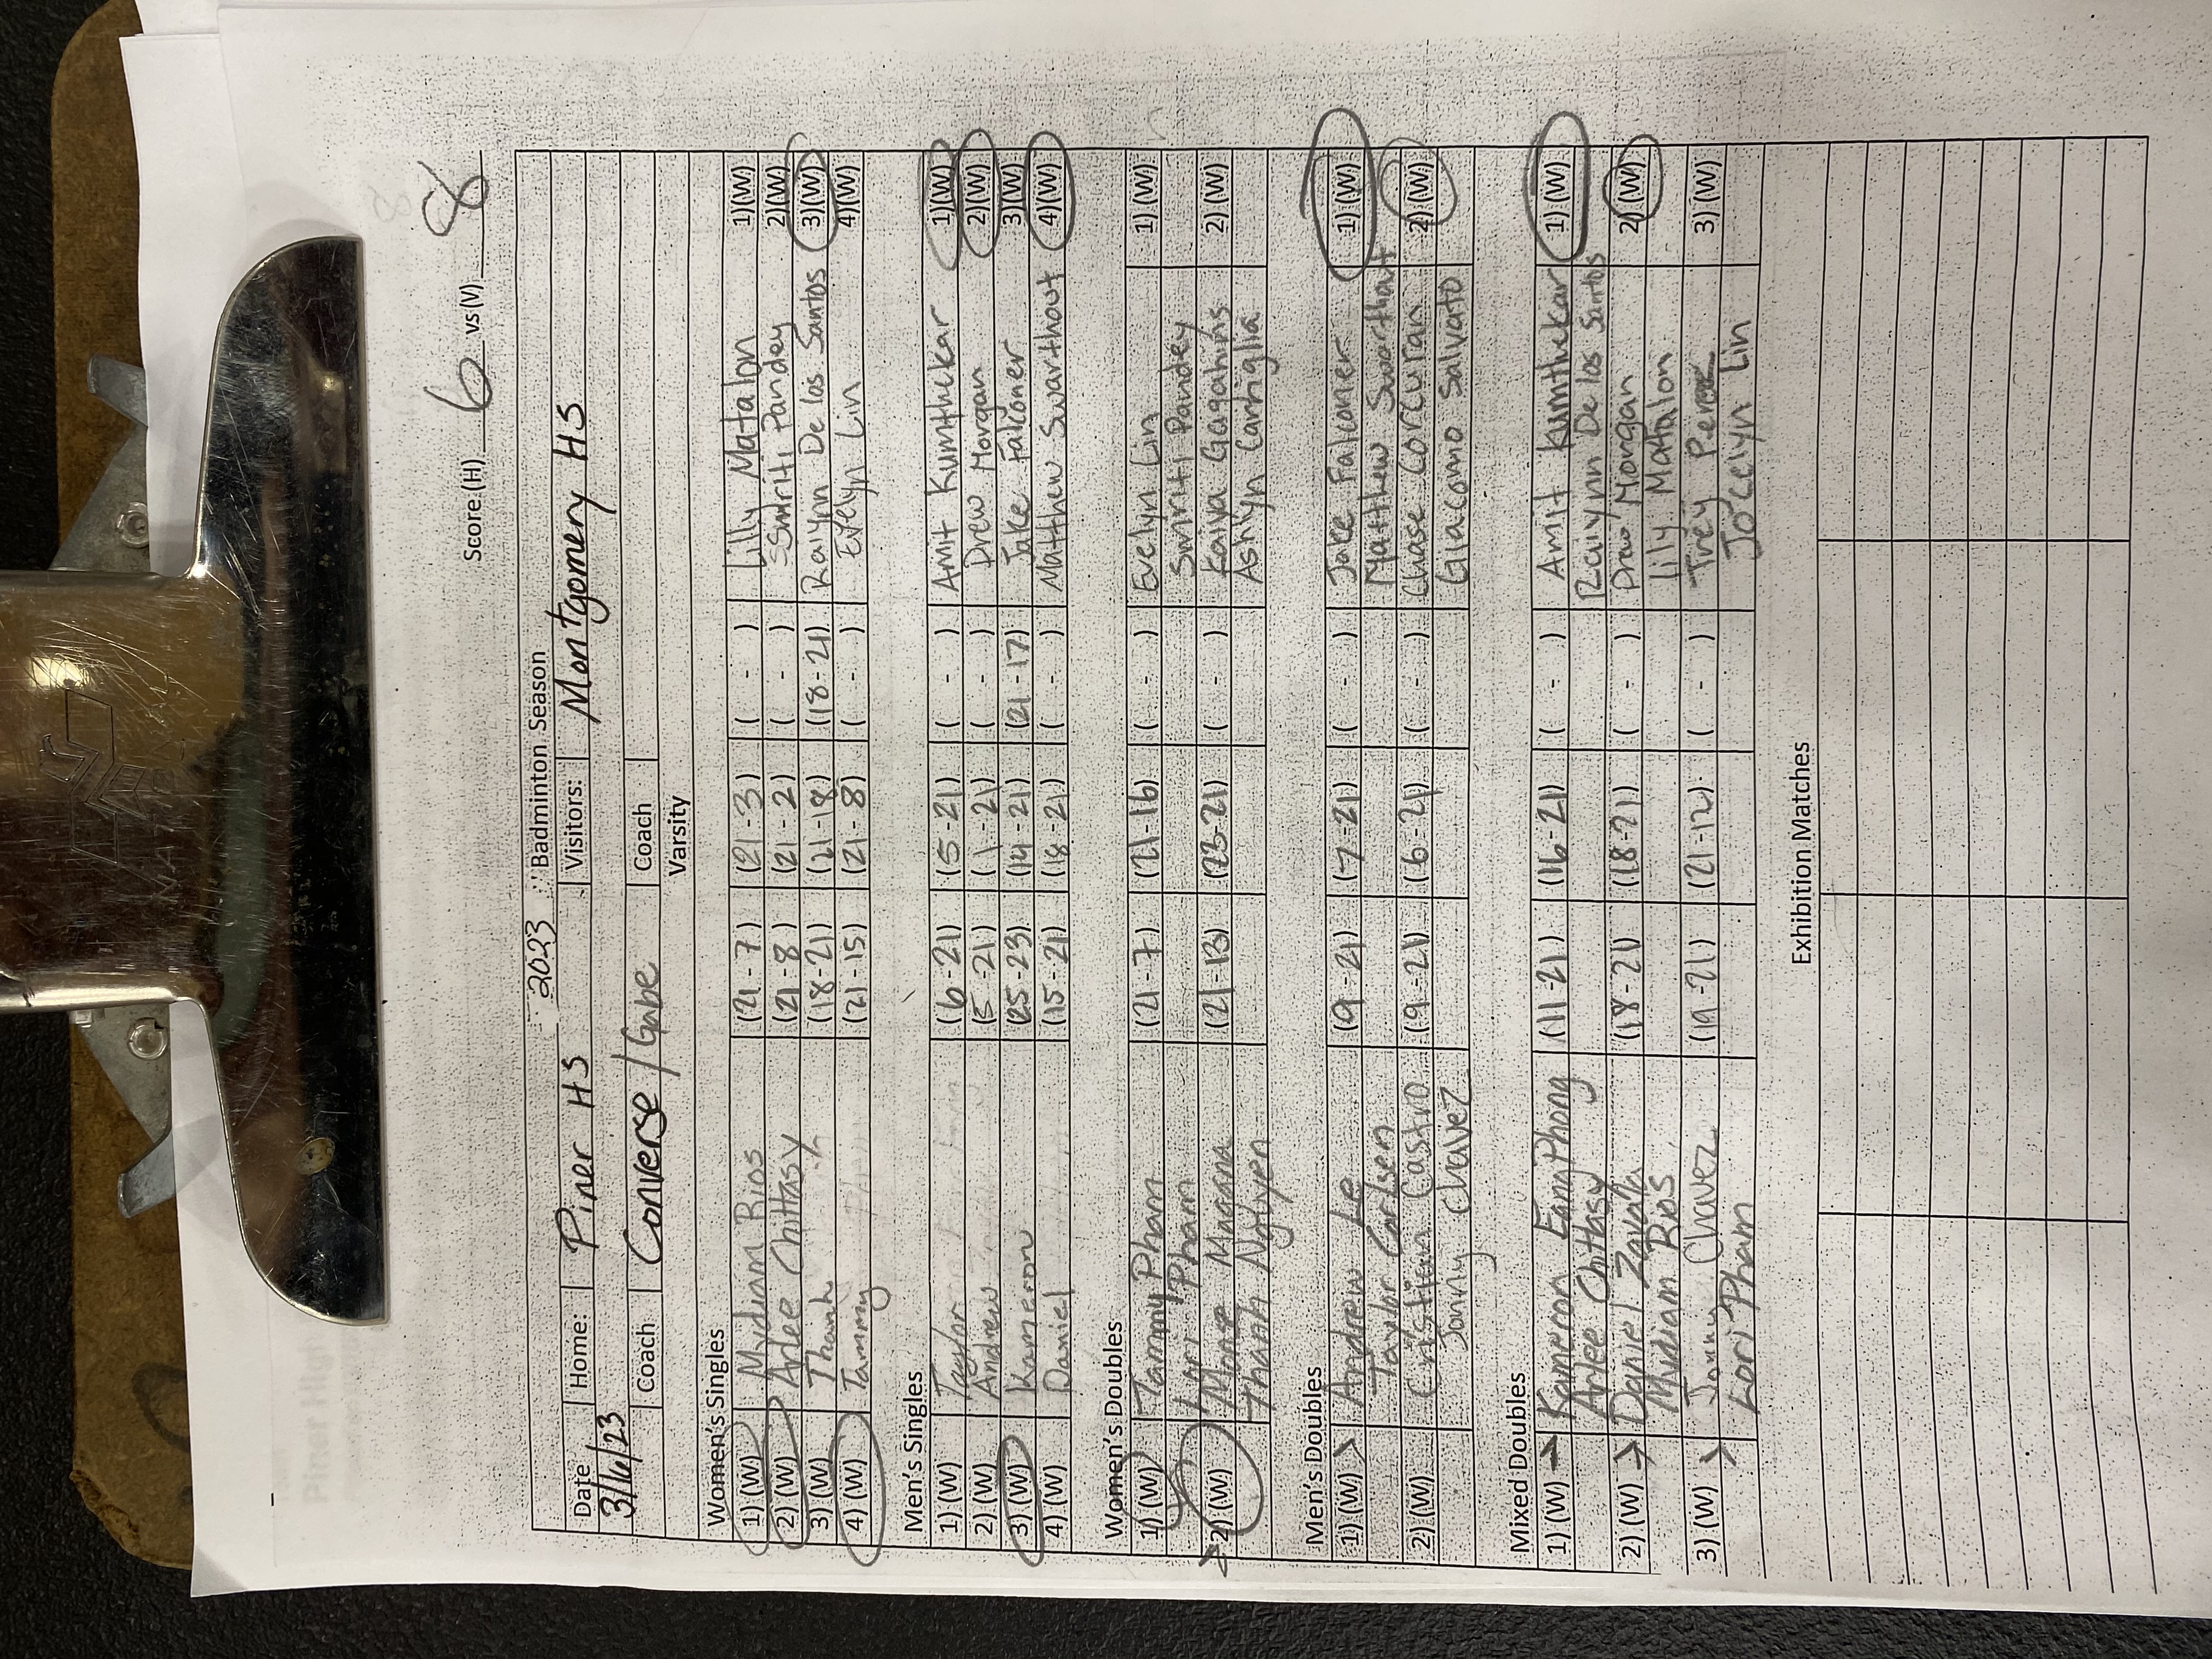 Score:(H) 6 vs(V): 8
2023 Badminton Season
Date Home: Piner HS Visitors: Montgomery HS
3/16/23
Coach Converse / Gabe Coach
Varsity
Women's Singles
1) (W) Mydiam Rios (21 - 7) (21 - 3) ( - ) Lilly Matalon 1)(W)
2) (W) Arlee Chittasy (21 - 8) (21 - 2) ( - ) Smriti Pandey 2)(W)
3) (W) Thanh (18 - 21) (21 - 18) (18 - 21) Railynn De las Santos 3)(W)
4) (W) Tammy (21 - 15) (21 - 8) ( - ) Evelyn Lin 4)(W)
Men's Singles
1) (W) Taylor (6 - 21) (5 - 21) ( - ) Amit Kumthekar 1)(W)
2) (W) Andrew (5 - 21) (1 - 21) ( - ) Drew Morgan 2)(W)
3) (W) Kameron (25 - 23) (14 - 21) (21 - 17) Jake Falconer 3)(W)
4) (W) Daniel (15 - 21) (18 - 21) ( - ) Matthew Swarthout 4)(W)
Women's Doubles
1) (W) Tammy Pham (21 - 7) (21 - 16) ( - ) Evelyn Lin 1) (W)
Lori Pham Smriti Pandey
2) (W) Magana (21 - 13) (23 - 21) ( - ) Kaiya 2) (W)
Thanh Nguyen Ashlyn Cartiglia
Men's Doubles
1) (W) > Andrew Le (9 - 21) (7 - 21) ( - ) Jake Falconer 1) (W)
Taylor Carlsen Matthew Swarthout
2) (W) Cristian Castro (9 - 21) (6 - 21) ( - ) Chase Corcuran 2) (W)
Jonny Chavez Giacomo Salvato
Mixed Doubles
1) (W) > Kameron EangPhong (11 - 21) (16 - 21) ( - ) Amit Kumthekar 1) (W)
Arlee Chittasy Railynn De las Santos
2) (W) > Daniel Zavala (18 - 21) (18 - 21) ( - ) Drew Morgan 2) (W)
Mydiam Rios Lily Matalon
3) (W) > Jonny Chavez (19 - 21) (21 - 12) ( - ) Trey 3) (W)
Lori Pham Jocelyn Lin
Exhibition Matches